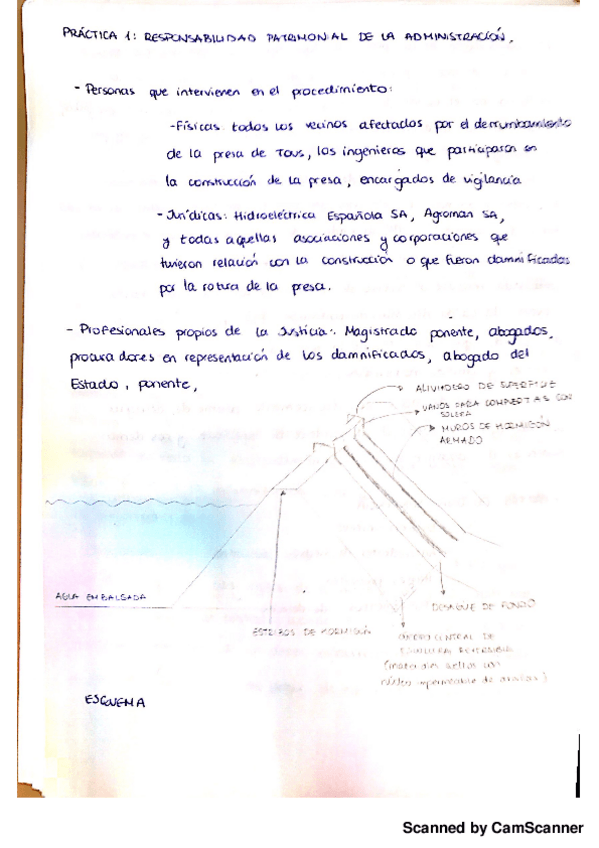 PRÁCTICA 1: RESPONSABILIDAD PATRIMONIAL DE LA ADMINISTRACIÓN.
- Personas que intervienen en el procedimiento:
- Físicas: todos los vecinos afectados por el derrumbamiento
de la presa de Tous, los ingenieros que participaron en
la construcción de la presa, encargados de vigilancia
- Jurídicas: Hidroeléctrica Española SA, Agroman SA,
y todas aquellas asociaciones y corporaciones que
tuvieron relación con la construcción o que fueron damnificadas
por la rotura de la presa.
- Profesionales propios de la Justicia: Magistrado ponente, abogados,
procuradores en representación de los damnificados, abogado del
Estado, ponente,
ALIVIADERO DE SUPERFICIE
VANOS PARA COMPUERTAS CON
SOLERA
MUROS DE HORMIGÓN
ARMADO
AGUA EMBALSADA
DESAGUE DE FONDO
ESTRIBOS DE HORMIGÓN
CUERPO CENTRAL DE
núcleo impermeable de arcillas)
ESQUEMA
Scanned by CamScanner